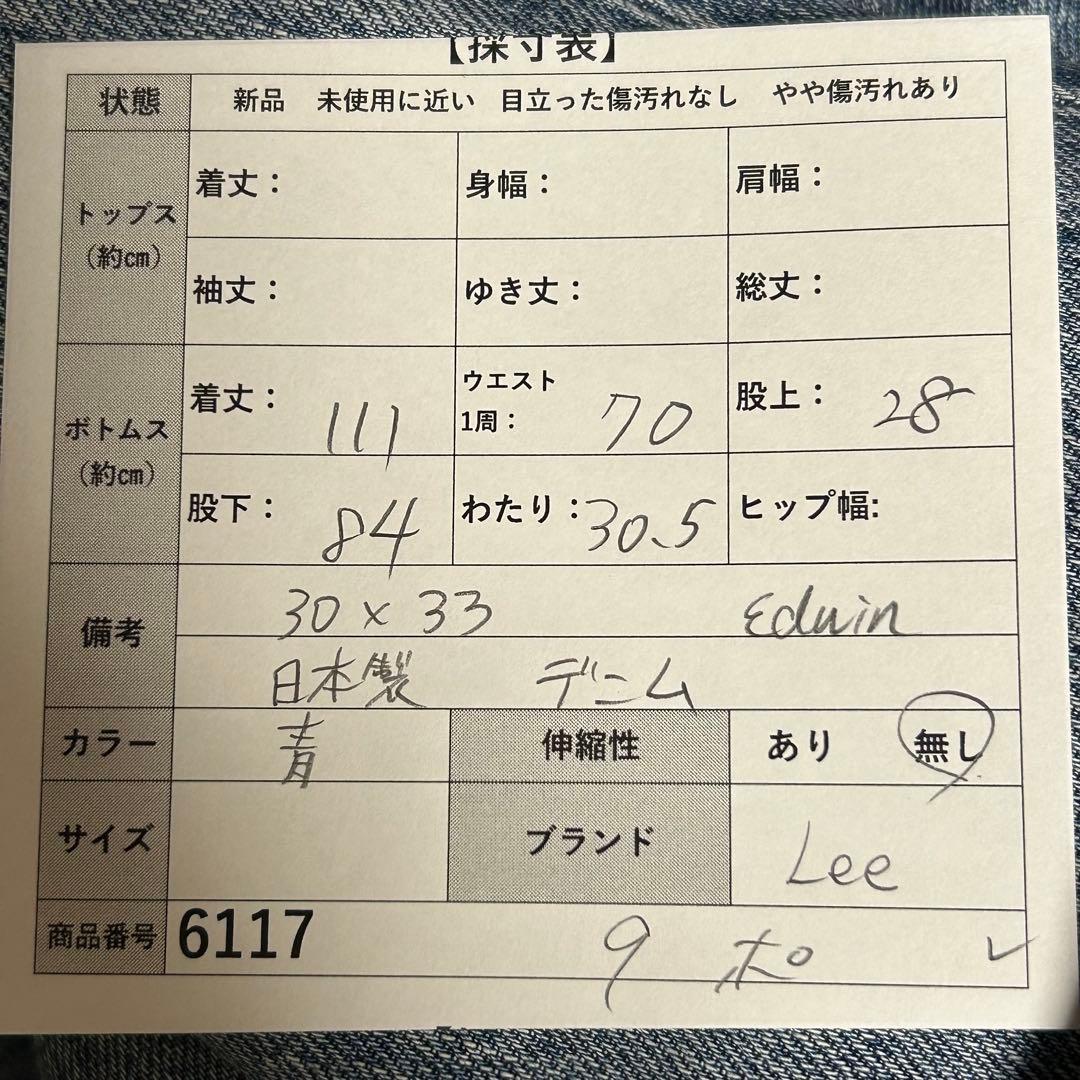 【採寸表】
状態 新品 未使用に近い 目立った傷汚れなし やや傷汚れあり
トップス（約㎝） 着丈： 身幅： 肩幅：
袖丈： ゆき丈： 総丈：
ボトムス（約㎝） 着丈： 111 ウエスト1周： 70 股上： 28
股下： 84 わたり： 30.5 ヒップ幅:
備考 30 x 33 Edwin
日本製 デニム
カラー 青 伸縮性 あり 無し
サイズ ブランド Lee
商品番号 6117 9 ポ